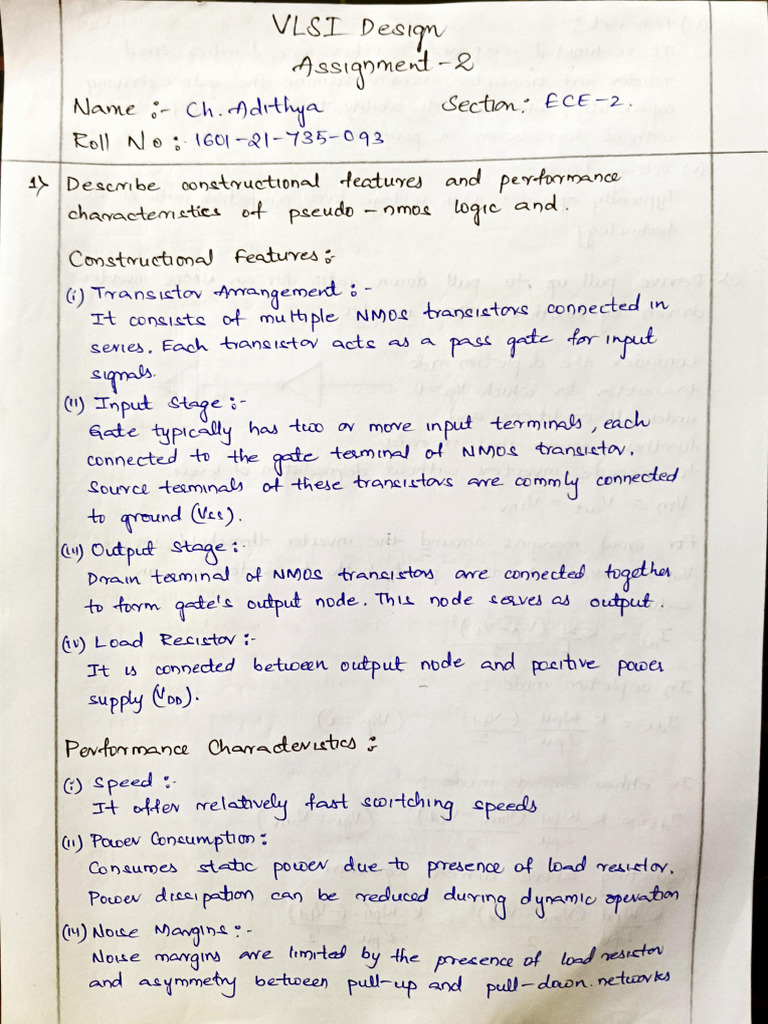 VLSI Design
Assignment-2
Name :- Ch. Adithya Section: ECE-2.
Roll No :- 1601-21-735-093
1) Describe constructional features and performance
characteristics of pseudo-nmos logic and.
Constructional Features :-
(i) Transistor Arrangement :-
It consists of multiple NMOS transistors connected in
series. Each transistor acts as a pass gate for input
signals.
(ii) Input Stage :-
Gate typically has two or more input terminals, each
connected to the gate terminal of NMOS transistor.
Source terminals of these transistors are commly connected
to ground (Vss).
(iii) Output Stage :-
Drain terminal of NMOS transistors are connected together
to form gate's output node. This node serves as output.
(iv) Load Resistor :-
It is connected between output node and positive power
supply (VDD).
Performance Characteristics :-
(i) Speed :-
It offer relatively fast switching speeds
(ii) Power Consumption :
Consumes static power due to presence of load resistor.
Power dissipation can be reduced during dynamic operation
(iii) Noise Margins :-
Noise margins are limited by the presence of load resistor
and asymmetry between pull-up and pull-down networks